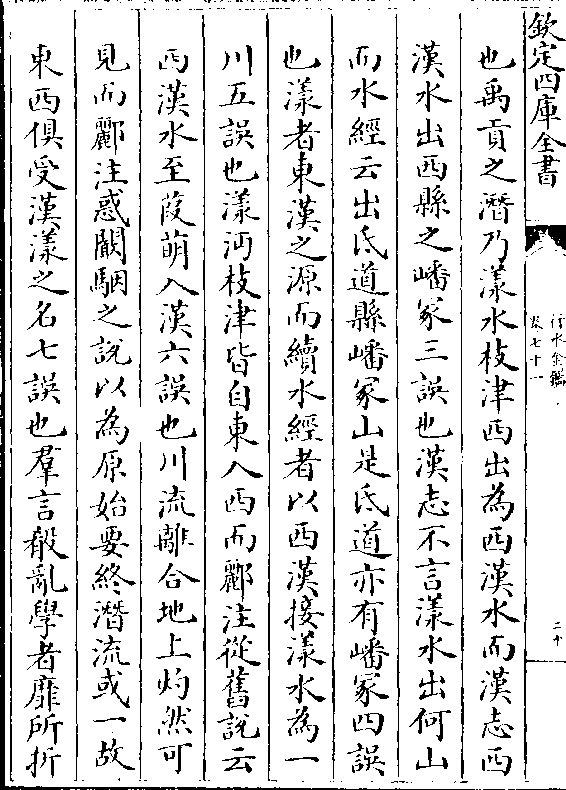 欽定四庫全書
行水金鑑
卷七十一
二十
也禹貢之潛乃漾水枝津西出為西漢水而漢志西
漢水出西縣之嶓冢三誤也漢志不言漾水出何山
而水經云出氐道縣嶓冢山是氐道亦有嶓冢四誤
也漾者東漢之源而續水經者以西漢接漾水為一
川五誤也漾沔枝津皆自東入西而酈注從舊說云
西漢水至葭萌入漢六誤也川流離合地上灼然可
見而酈注惑闞駰之說以為原始要終潛流或一故
東西俱受漢漾之名七誤也羣言殽亂學者靡所折